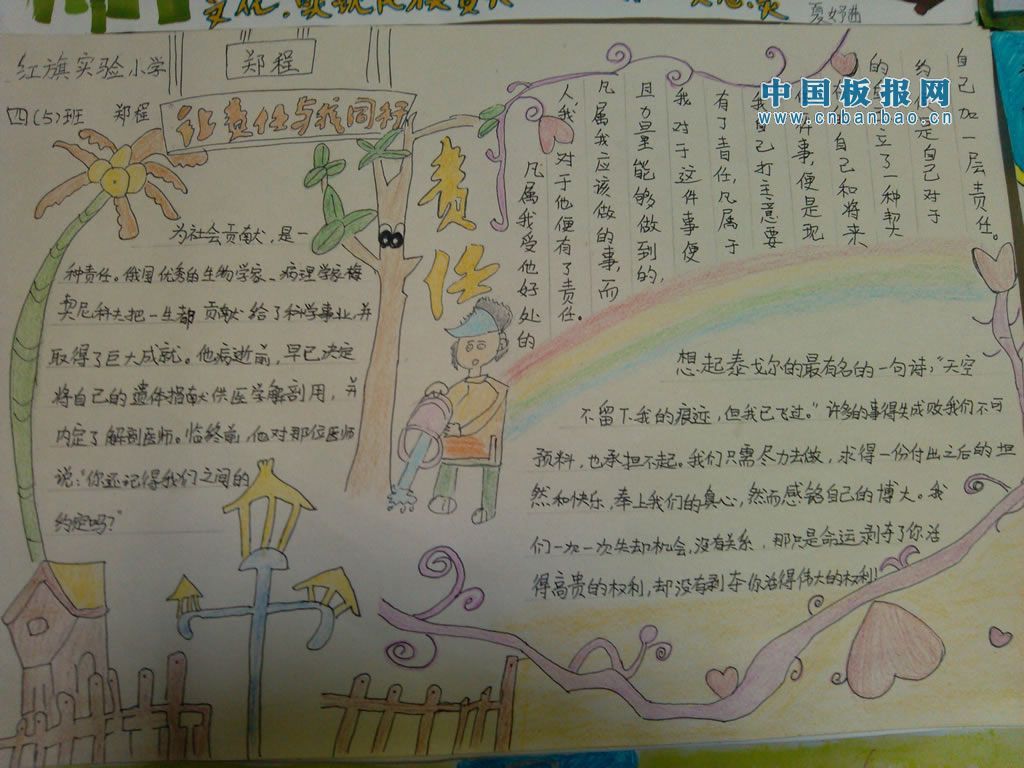 红旗实验小学
四(5)班 郑程
郑程
让责任与我同行
责任
为社会贡献,是一
种责任。俄国优秀的生物学家、病理学家梅
契尼科夫把一生都贡献给了科学事业,并
取得了巨大成就。他病逝前,早已决定
将自己的遗体捐献供医学解剖用,并
内定了解剖医师。临终前,他对那位医师
说:“你还记得我们之间的
约定吗?”
凡属我受他好处的
人我,对于他便有了责任。
凡属我应该做的事,而
且力量能够做到的,
我对于这件事便
有了责任,凡属于
我自己打主意要
件事,便是现
自己和将来
的立了一种契
约是自己对于
自己加一层责任。
想起泰戈尔的最有名的一句诗;“天空
不留下我的痕迹,但我已飞过。”许多的事得失成败我们不可
预料,也承担不起。我们只需尽力去做,求得一份付出之后的坦
然和快乐,奉上我们的真心,然而感铭自己的博大。我
们一次一次失却机会,没有关系,那只是命运剥夺了你活
得高贵的权利,却没有剥夺你活得伟大的权利!
中国板报网
www.cnbanbao.cn